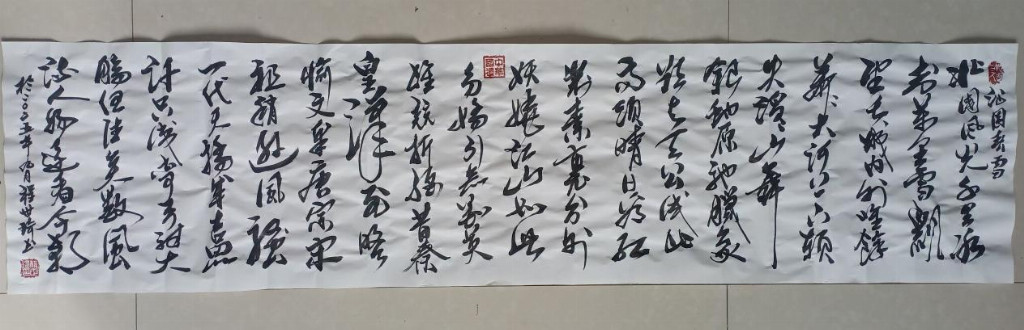 沁园春雪
北国风光千里冰
封万里雪飘
望长城内外唯馀
莽莽大河上下顿
失滔滔山舞
银蛇原驰腊象
欲与天公试比
高须晴日看红
装素裹分外
妖娆江山如此
多娇引无数英
雄竞折腰昔秦
皇汉武略
输文采唐宗宋
祖稍逊风骚
一代天骄成吉思
汗只识弯弓射大
雕俱往矣数风
流人物还看今朝
於二〇二五年